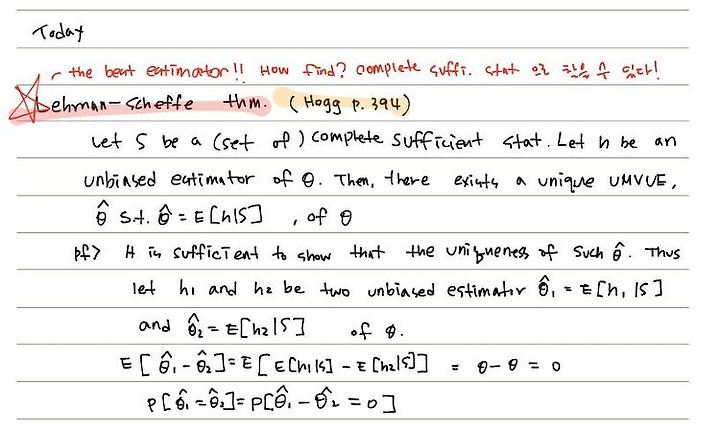 Today
the best estimator!! How find? complete suffi. stat 으로 찾을 수 있다!
Lehman-Scheffe thm. (Hogg p.394)
Let S be a (set of) complete sufficient stat. Let h be an
unbiased estimator of θ. Then, there exists a unique UMVUE,
θ̂ s.t. θ̂ = E[h|S] , of θ
pf> It is sufficient to show that the uniqueness of such θ̂. Thus
let h₁ and h₂ be two unbiased estimator θ̂₁ = E[h₁|S]
and θ̂₂ = E[h₂|S] of θ.
E[θ̂₁ - θ̂₂] = E[E[h₁|S] - E[h₂|S]] = θ - θ = 0
P[θ̂₁ = θ̂₂] = P[θ̂₁ - θ̂₂ = 0]